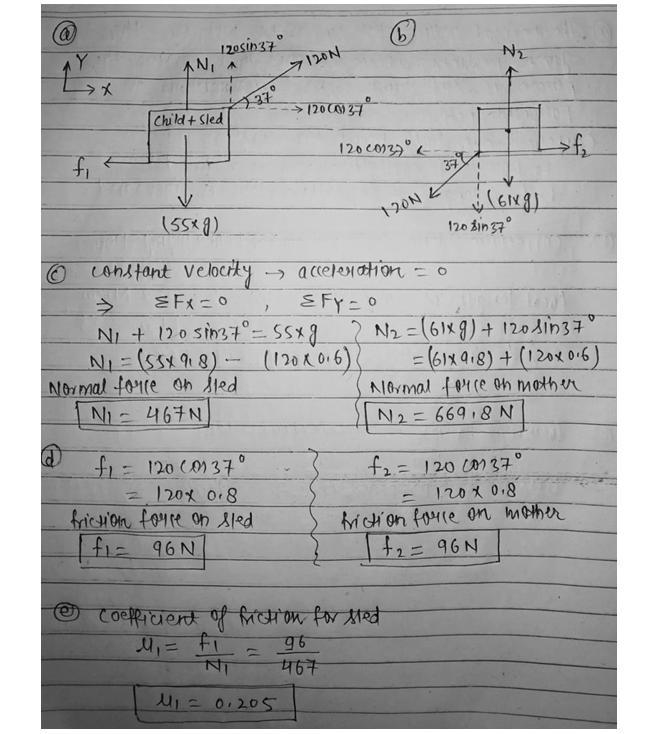 (a)
Y
X
N₁
120sin37°
120N
37°
120cos37°
Child + Sled
f₁
(55×g)
(b)
N₂
120cos37°
37°
f₂
120N
(61×g)
120sin37°
(c) constant velocity → acceleration = 0
⇒ ΣFx = 0 , ΣFy = 0
N₁ + 120 sin37° = 55×g
N₁ = (55×9.8) - (120×0.6)
Normal force on sled
N₁ = 467N
N₂ = (61×g) + 120sin37°
= (61×9.8) + (120×0.6)
Normal force on mother
N₂ = 669.8 N
(d)
f₁ = 120 cos37°
= 120× 0.8
friction force on sled
f₁ = 96N
f₂ = 120 cos37°
= 120× 0.8
friction force on mother
f₂ = 96N
(e) coefficient of friction for sled
μ₁ = f₁/N₁ = 96/467
μ₁ = 0.205